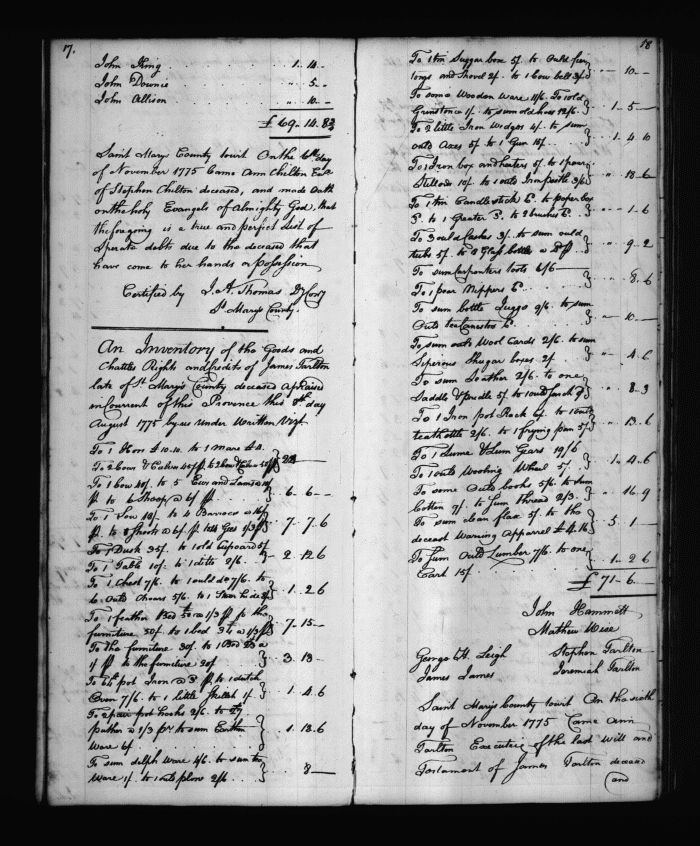 7.
John King . . . 1 . 14 ..
John Downie . . . " . 5 ..
John Allison . . . " . 10 ..
£ 69 . 14 . 8
Saint Marys County Court On the 6th day
of November 1775 Came Ann Chilton Exx
of Stephen Chilton deceased, and made Oath
on the holy Evangels of Almighty God, that
the foregoing is a true and perfect List of
Sperate debts due to the deceased that
have come to her hands or possession
Certified by J. A. Thomas
St. Marys County.
An Inventory of the Goods and
Chattles Rights and Credits of James Tarlton
late of St Marys County deceased apraised
in Current of this Province this day
August 1775 by us under Written Vizt
To 1 Hors £10.10. to 1 Mare £4.
To 2 Cows & Calves 45/
To 1 Cow 40/. to 5 Ews and Lambs
to 6 Sheep @ 6/ } 6 . 6 ..
To 1 Sow 18/. to 4 Barrows @ 16/
to 8 Shoots @ 6/. Gees } 7 . 7 . 6
To 1 Dusk 35/. to 1 old Cupoard 5/
To 1 Table 10/. to 1 ditto 2/6 . . } 2 . 12 . 6
To 1 Chest 7/6 to 1 ould do 7/6 to
6 Outd Chears 5/6. to 1 } 1 . 2 . 6
To 1 feather Bed @ 1/3 to the
furniture 30/. to 1 bed @ 1/3 } 7 . 15 —
To the furniture 30/. to 1 Bed @
1/ to the furniture 20/ } 3 . 13 .
To pot Iron @ to 1 dutch
Oven 7/6. to 1 little Skillet 1/. } 1 . 4 . 6
To 2 pair pot hooks 2/6. to
puther @ 1/3 to sum Earthen
Ware 6/ . . . } 1 . 18 . 6
To sum delph Ware 4/6. to sum tin
Ware 1/. to 1 outd plow 2/6 . . } 8 —
18
To 1 tin Suggar box 5/. to Ould fier
tongs and Shovel 2/. to 1 Cow bell 3/ } " 10 ..
To some Wooden Ware 11/6 To 1 old
Grinstone 1/. to sum old hoes 12/6 } 1 . 5 —
To 2 little Iron Wedges 4/. to sum
outd Axes 5/. to 1 Gun 15/. } 1 . 4 . 0
To 1 Iron box and heaters 5/. to 1 pair
Stillards 10/. to 1 outd Iron 3/6 } " 18 . 6
To 1 tin Candlestick 6. to paper box
3. to 1 Greater 3. to 2 brushes 6. } " 1 . 6
To 3 ould Casks 3/. to sum ould
tubs 5/. to 8 Glass bottles @ } " 9 . 2
To sum Carpenters tools 6/6
To 1 pear Nippers } " 8 . 6
To sum bottle Juggs 9/6. to sum
Outd tea Canestos . . } " 10 —
To sum outd Wool Cards 2/6. to sum
Shugar boxes 2/. } " 4 . 6
To sum Leather 2/6. to one
Saddle & Bridle 5/. to 1 outd } " 8 . 3
To 1 Iron pot Rack 6/. to 1 outd
teakettle 2/6. to 1 frying pan 5/ } " 13 . 6
To 1 Lume & Lum Gears 19/6
To 1 outd Wooling Wheal 5/. } 1 . 4 . 6
To some Outd books 5/6. to sum
Cotton 9/. to sum thread 2/3. } " 16 . 9
To sum clean flax 5/. to the
deceast Waring Apparrel £ 4.16 } 5 . 1 —
To sum Outd Lumber 7/6. to one
Cart 15/. } 1 . 2 . 6
£ 71 . 6 —
John Hammett
Mathew Wise
George H. Leigh Stephen Tarlton
James James Jeremiah Tarlton
Saint Marys County Court On the sixth
day of November 1775 Came Ann
Tarlton Executrx of the last Will and
Testament of James Tarlton deceasd
(and